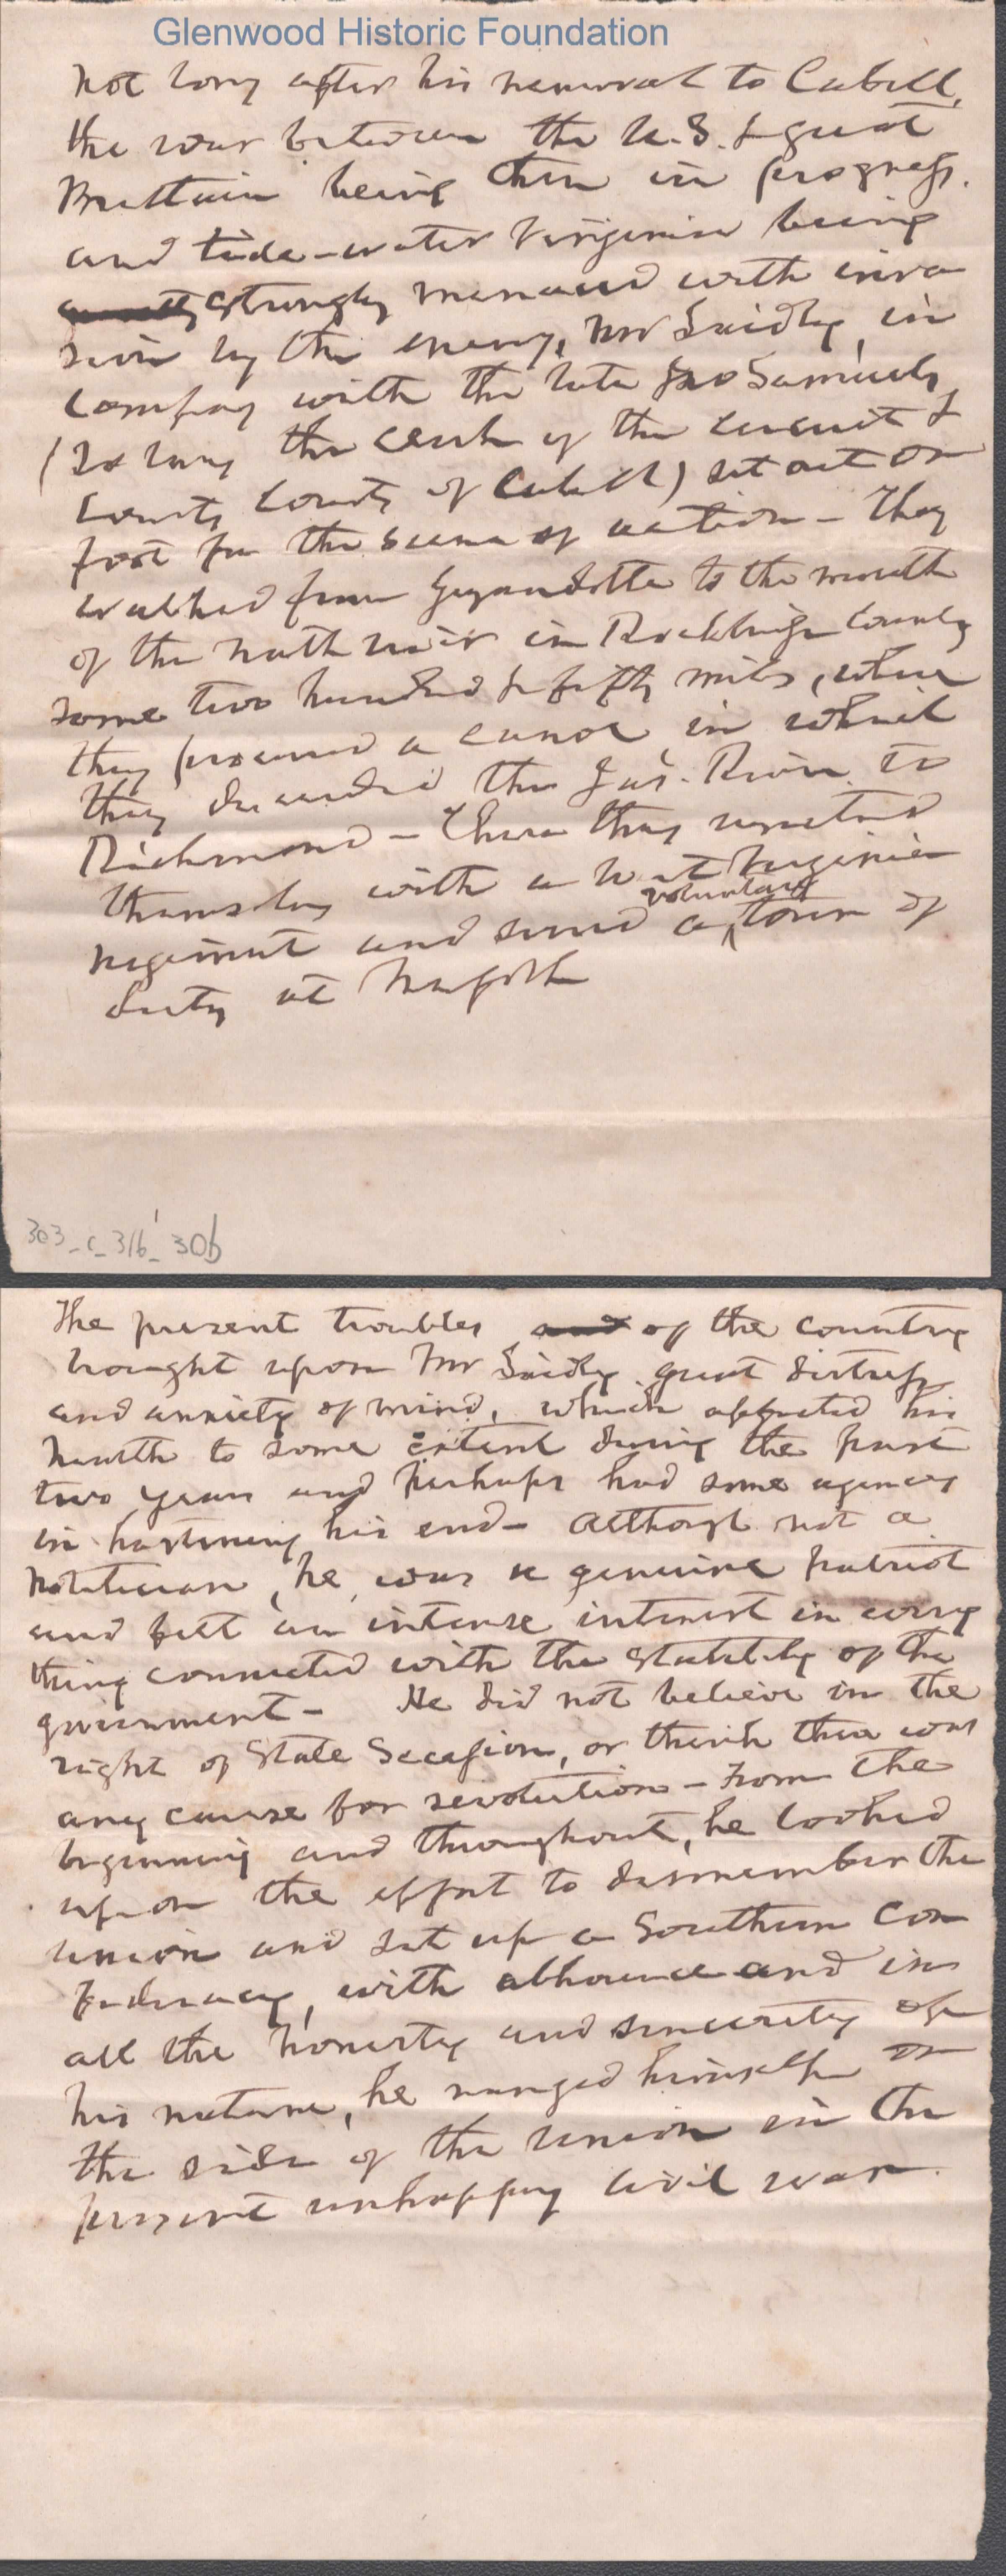 Glenwood Historic Foundation
Not long after his removal to Cabell,
the war between the U.S. & great
Brittain being then in progress.
and tide-water Virginia being
strongly menaced with inva
sion by the enemy, Mr Laidley, in
company with the late Jno Samuels
(so long the clerk of the circuit &
county courts of Cabell) set out on
foot for the scene of action - They
walked from Guyandotte to the mouth
of the north river in Rockbridge County
some two hundred & fifty miles, where
they procured a canoe, in which
they descended the Jas. River to
Richmond - There they united
themselves with a West Virginia
regiment and served a voluntary tour of
duty at Norfolk
303_c_316_306
The present troubles and of the country
brought upon Mr Laidley great distress
and anxiety of mind, which affected his
health to some extent during the past
two years and perhaps had some agency
in hastening his end - Although not a
politician, he was a genuine patriot
and felt an intense interest in every
thing connected with the stability of the
government - He did not believe in the
right of State Secession, or think there was
any cause for revolution - From the
beginning and throughout, he looked
upon the effort to dismember the
union and set up a Southern Con
federacy, with abhorence and in
all the honesty and sincerity of
his nature, he ranged himself on
the side of the Union in the
present unhappy civil war.